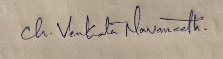 Ch. Venkata Navaneeth.